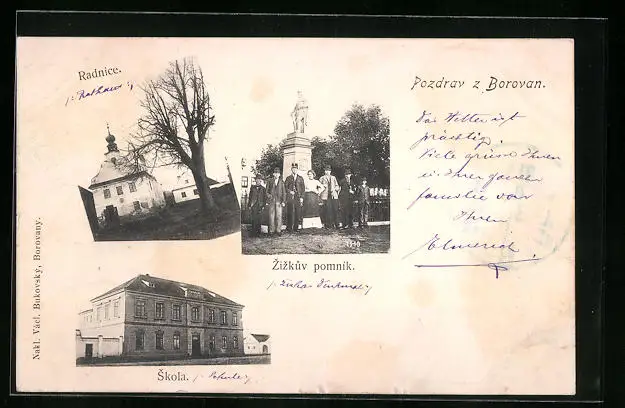 Radnice.
/: Rathaus :/
Pozdrav z Borovan.
Das Wetter ist
prächtig.
Viele Grüsse Ihnen
u. Ihrer ganzen
Familie von
Ihrem
Žižkův pomník.
Škola.
Nakl. Václ. Bukovský, Borovany.